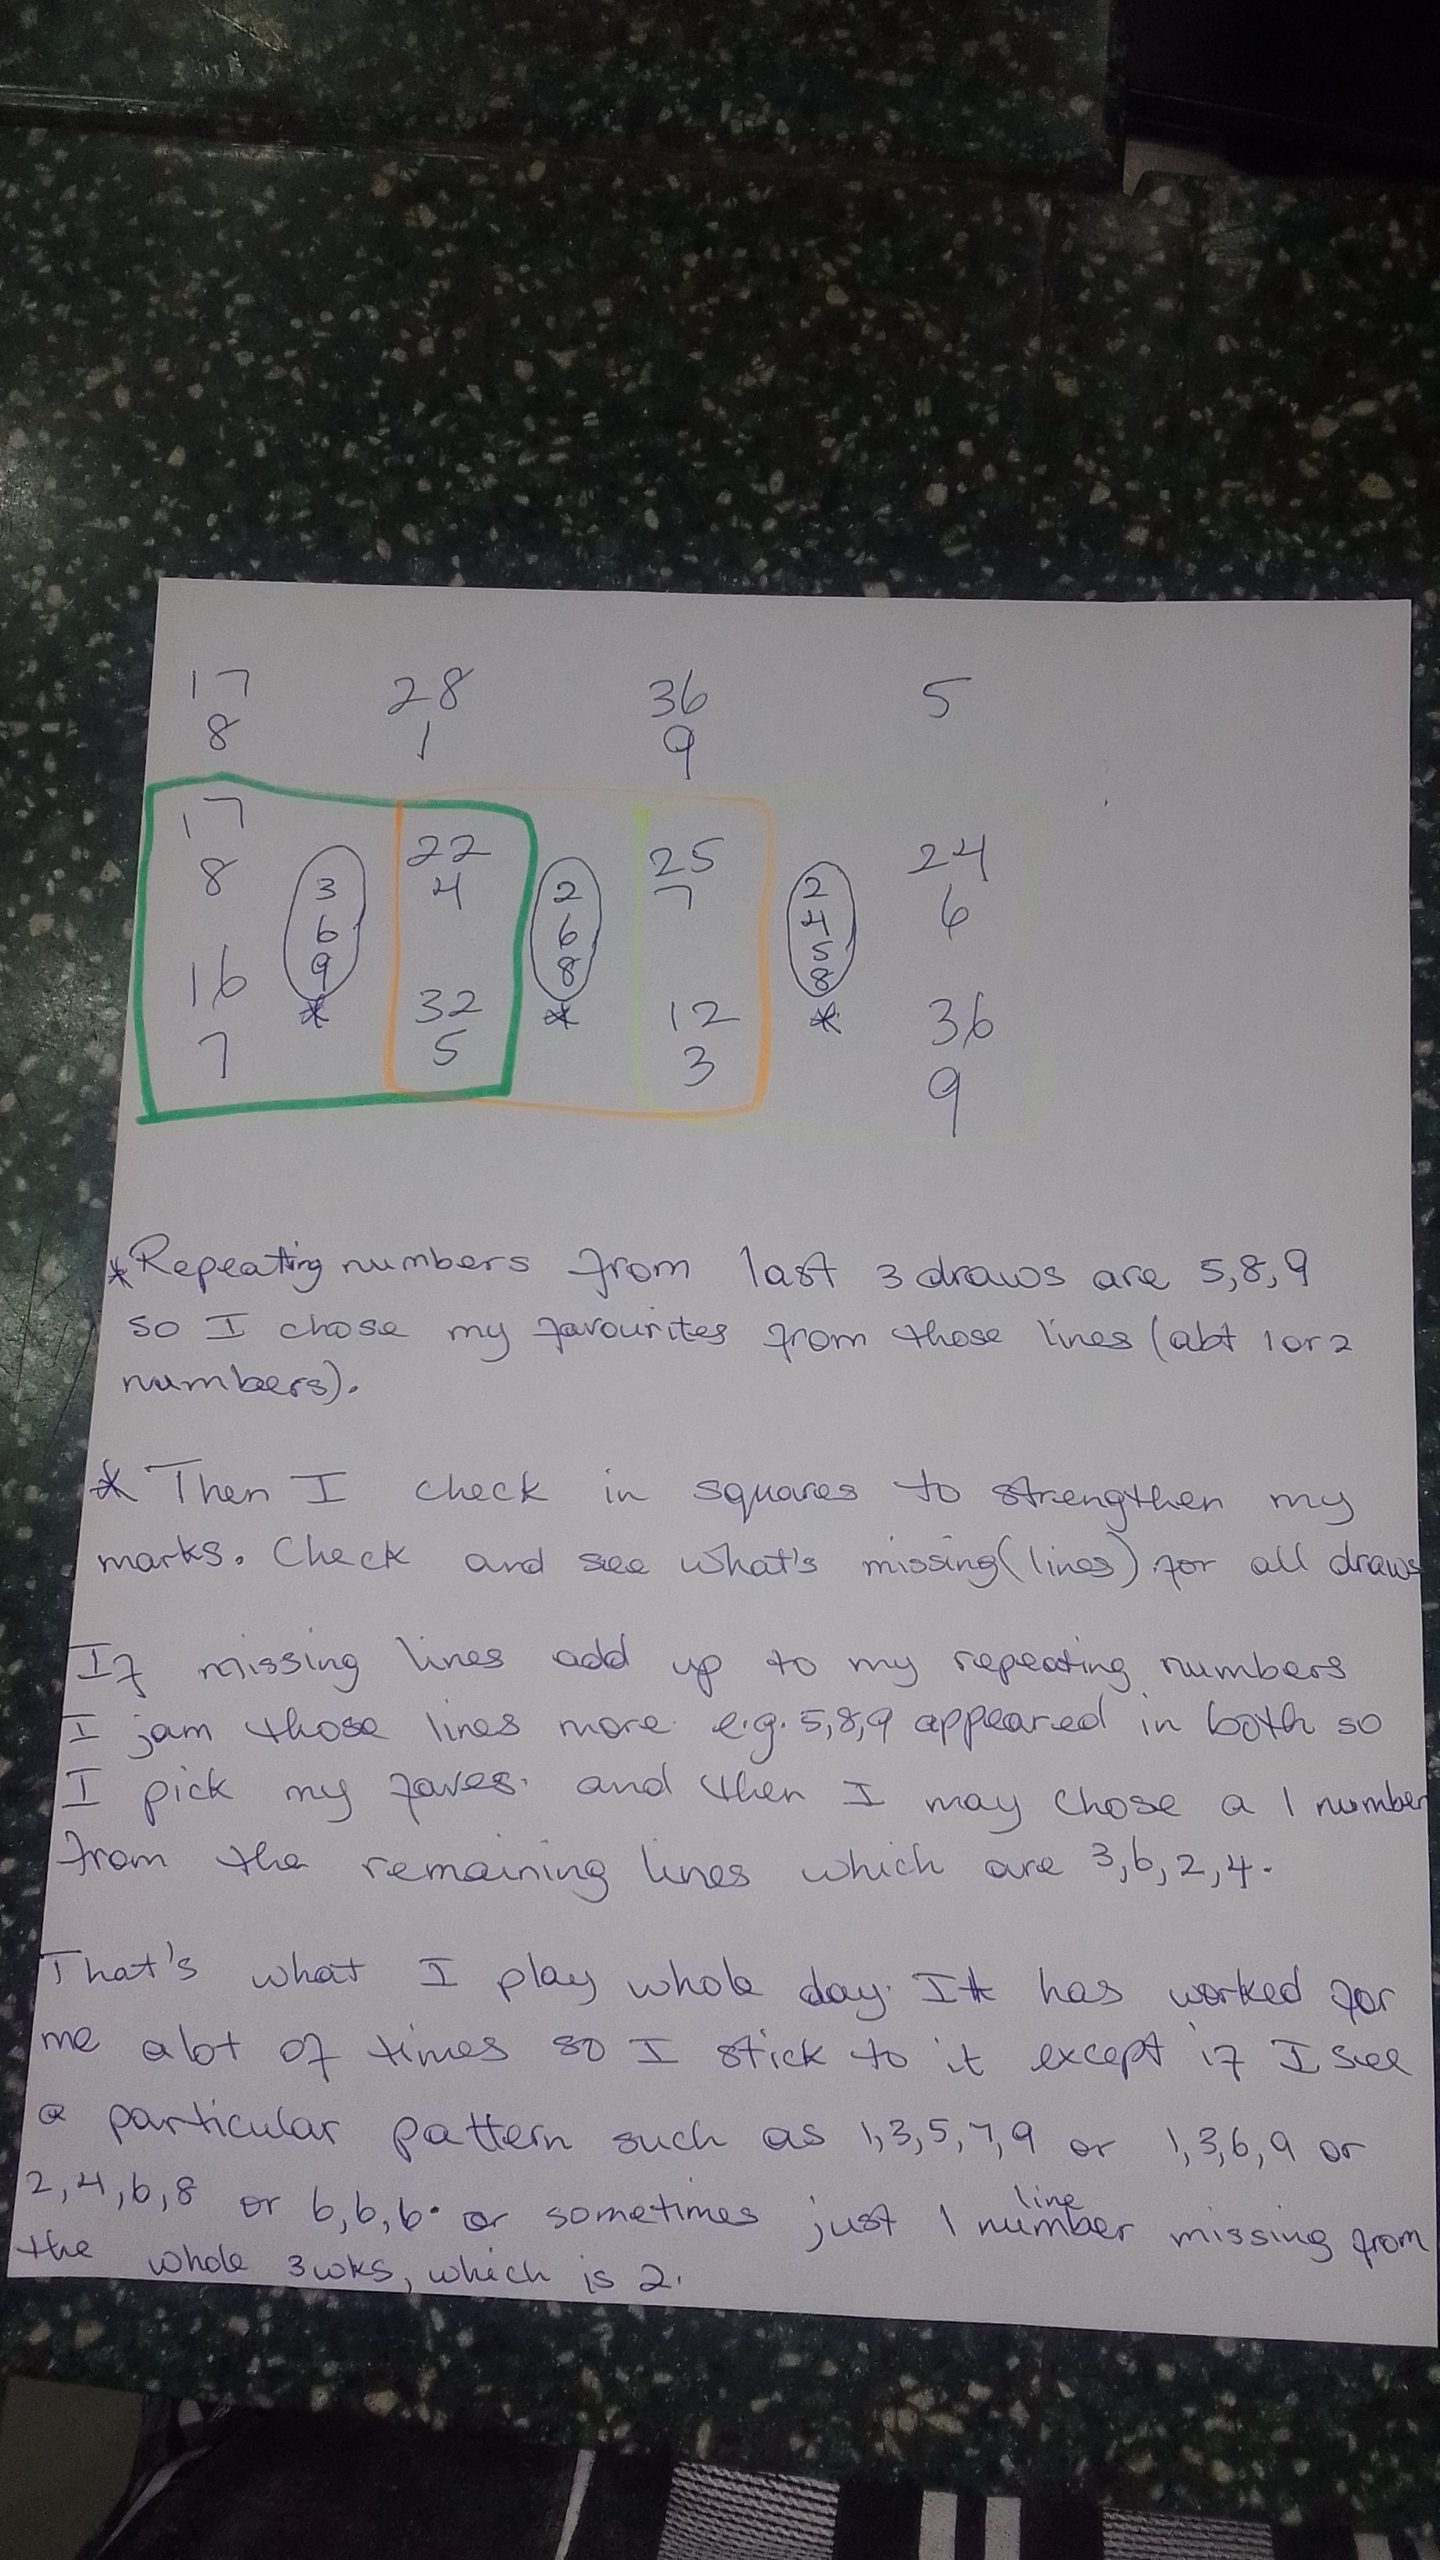 17 28 36 5
8 1 9
17 22 25 24
8 4 7 6
3 2 2
6 6 4
9 8 5
* * 8
*
16 32 12 36
7 5 3 9
*Repeating numbers from last 3 draws are 5,8,9
so I chose my favourites from those lines (abt 1 or 2
numbers).
* Then I check in squares to strengthen my
marks. Check and see what's missing (lines) for all draws
If missing lines add up to my repeating numbers
I jam those lines more. e.g. 5,8,9 appeared in both so
I pick my faves. and then I may chose a 1 number
from the remaining lines which are 3,6,2,4.
That's what I play whole day. It has worked for
me alot of times so I stick to it except if I see
a particular pattern such as 1,3,5,7,9 or 1,3,6,9 or
2,4,6,8 or 6,6,6. or sometimes just 1 line number missing from
the whole 3wks, which is 2.